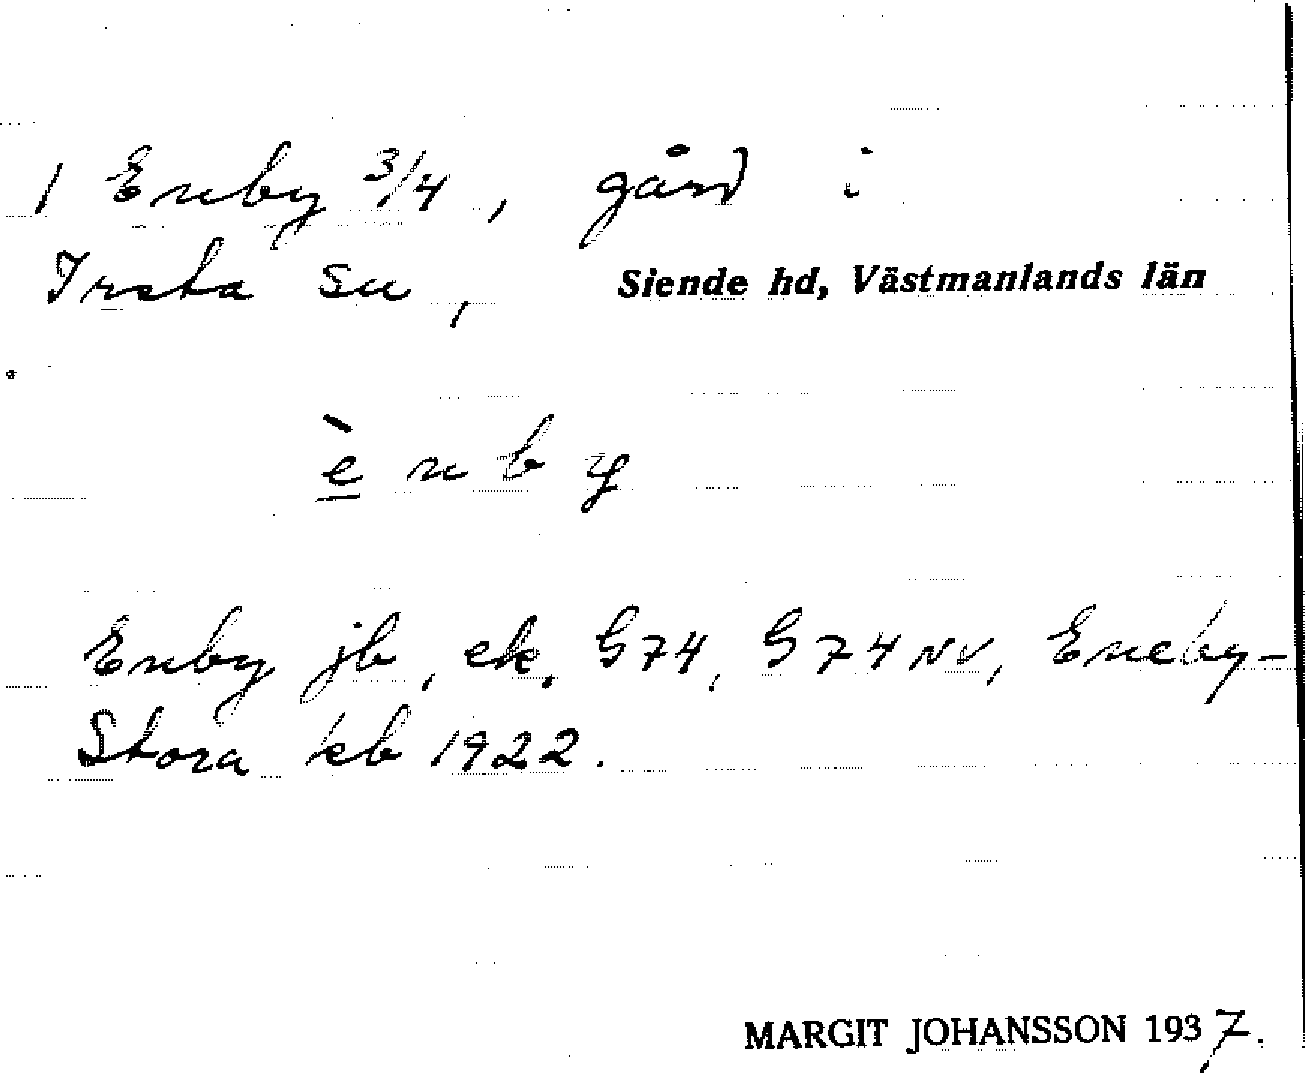 1 Enby 3/4, gård i
Irsta sn, Siende hd, Västmanlands län
è n b y
Enby jb, ek, G74, G74NV, Eneby-
Stora kb 1922.
MARGIT JOHANSSON 1937.